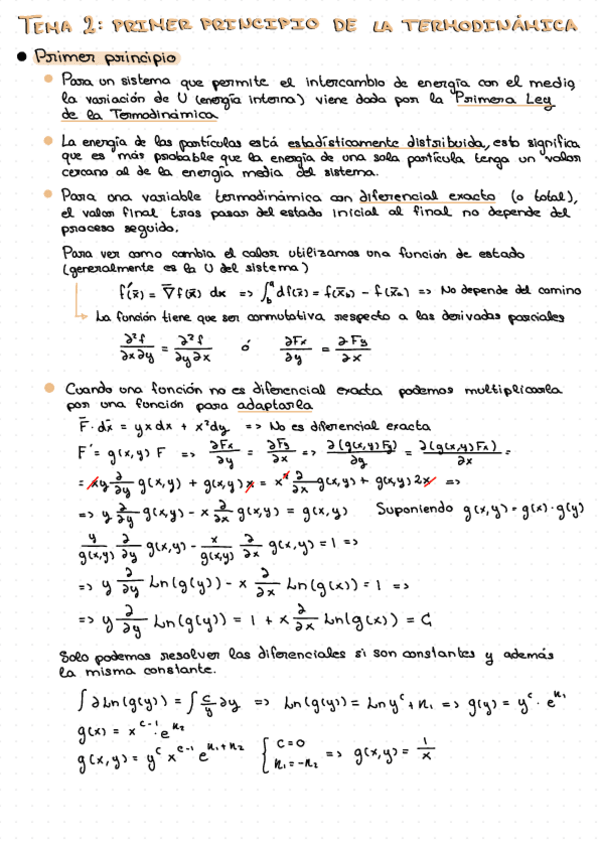 TEMA 2: PRIMER PRINCIPIO DE LA TERMODINÁMICA
Primer principio
Para un sistema que permite el intercambio de energía con el medio,
la variación de U (energía interna) viene dada por la Primera Ley
de la Termodinámica
La energía de las partículas está estadísticamente distribuida, esto significa
que es más probable que la energía de una sola partícula tenga un valor
cercano al de la energía media del sistema.
Para una variable termodinámica con diferencial exacto (o total),
el valor final tras pasar del estado inicial al final no depende del
proceso seguido.
Para ver como cambia el calor utilizamos una función de estado
(generalmente es la U del sistema)
f'(x̄) = ∇̄f(x̄) dx => ∫_b^a df(x̄) = f(x̄_b) - f(x̄_a) => No depende del camino
La función tiene que ser conmutativa respecto a las derivadas parciales
∂²f/∂x∂y = ∂²f/∂y∂x ó ∂Fx/∂y = ∂Fy/∂x
Cuando una función no es diferencial exacta podemos multiplicarla
por una función para adaptarla
F̄ · dx̄ = yxdx + x²dy => No es diferencial exacta
F' = g(x,y) F => ∂Fx/∂y = ∂Fy/∂x => ∂(g(x,y)Fy)/∂y = ∂(g(x,y)Fx)/∂x =
= xy ∂/∂y g(x,y) + g(x,y)x = x² ∂/∂x g(x,y) + g(x,y) 2x =>
=> y ∂/∂y g(x,y) - x ∂/∂x g(x,y) = g(x,y) Suponiendo g(x,y) = g(x)·g(y)
y/g(x,y) ∂/∂y g(x,y) - x/g(x,y) ∂/∂x g(x,y) = 1 =>
=> y ∂/∂y Ln(g(y)) - x ∂/∂x Ln(g(x)) = 1 =>
=> y ∂/∂y Ln(g(y)) = 1 + x ∂/∂x Ln(g(x)) = C
Solo podemos resolver las diferenciales si son constantes y además
la misma constante.
∫∂Ln(g(y)) = ∫ c/y ∂y => Ln(g(y)) = Ln y^c + n₁ => g(y) = y^c · e^n₁
g(x) = x^(c-1) · e^n₂
g(x,y) = y^c x^(c-1) e^(n₁+n₂) { c=0 n₁=-n₂ => g(x,y) = 1/x